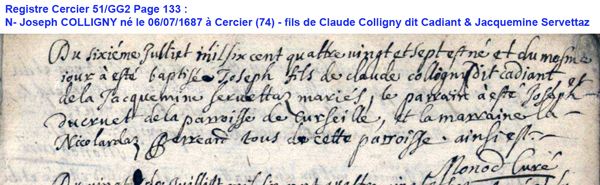 Registre Cercier 51/GG2 Page 133 :
N- Joseph COLLIGNY né le 06/07/1687 à Cercier (74) - fils de Claude Colligny dit Cadiant & Jacquemine Servettaz
Du sixiéme Juilliet mil six cent quattre vingt et sept est né et du mesme
iour à esté baptisé Joseph fils de claude colligny dit cadiant et
de la Jacquemine servettaz mariés, le parrain à esté Joseph
Ducruet de la parroisse de et la marraine la
Nicolarda tous de cette parroisse ainsi est
Monod Curé